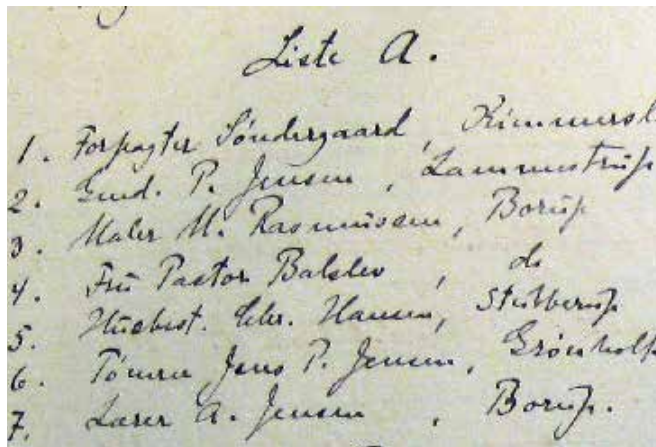 Liste A.
1. Forpagter Søndergaard, Kimmersl
2. Gmd. P. Jensen, Lammestrup
3. Maler M. Rasmussen, Borup
4. Fru Pastor Balslev, do
5. Husbest. Chr. Hansen, Stubberup
6. Tømrer Jens P. Jensen, Grønholt
7. Lærer A. Jensen, Borup.